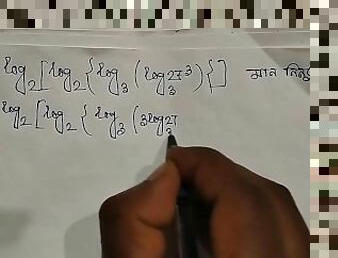 log₂[log₂{log₃(log₃27³)}] मान निর্
log₂[log₂{log₃(3log₃27